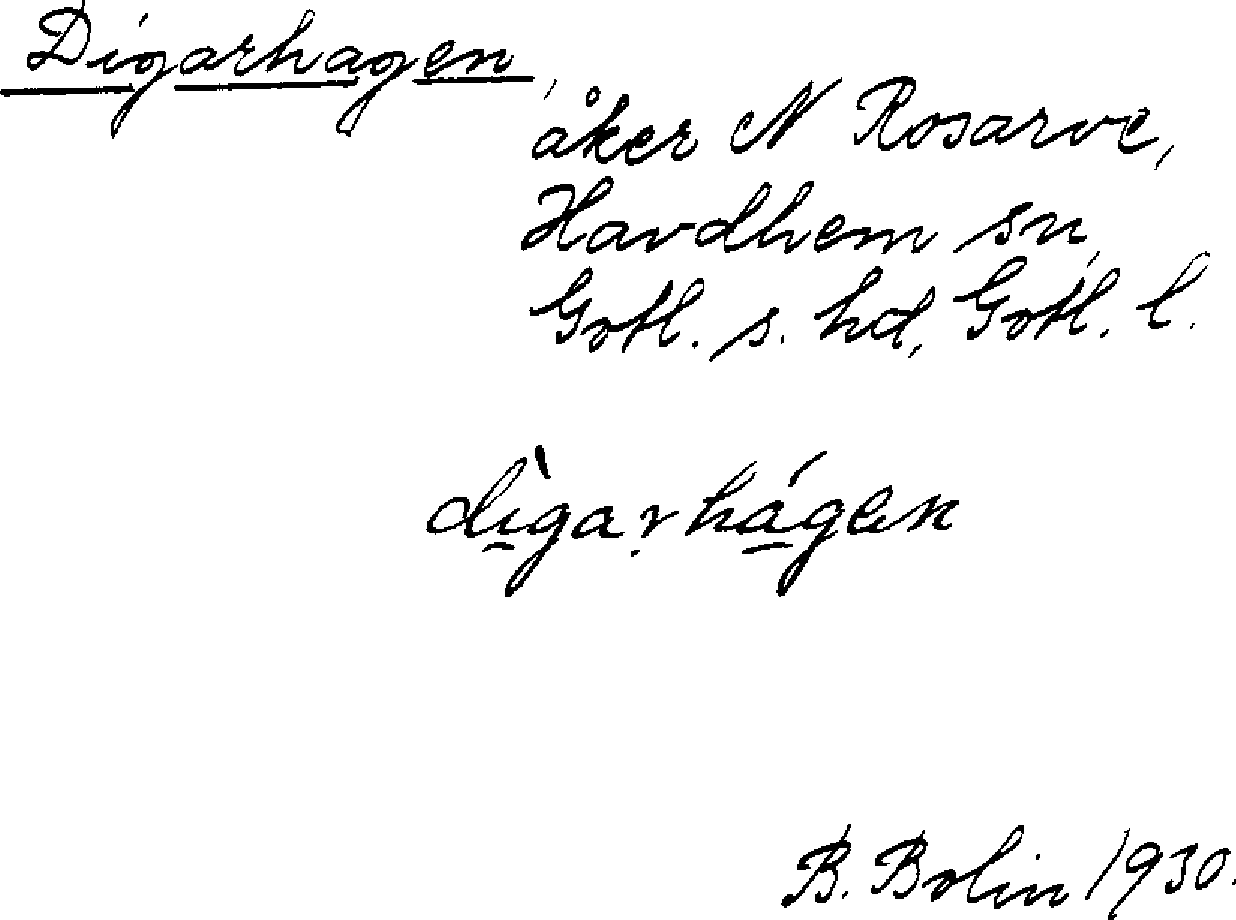 Digarhagen,
åker N Rosarve,
Havdhem sn,
Gotl. s. hd, Gotl. l.
dìgarhágen
B. Bolin 1930.